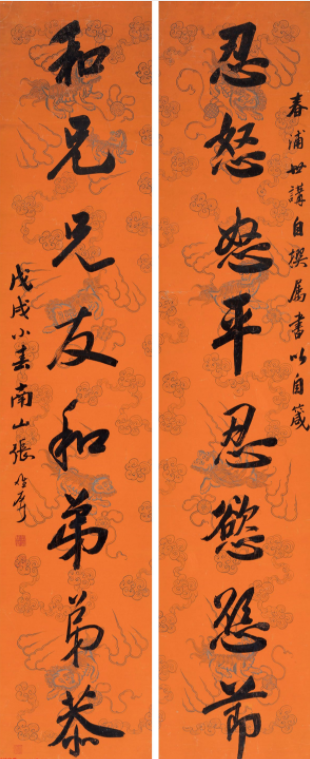 春浦世講自撰属書以自箴
忍怒怒平忍慾慾節
和兄兄友和弟弟恭
戊戌小春南山張